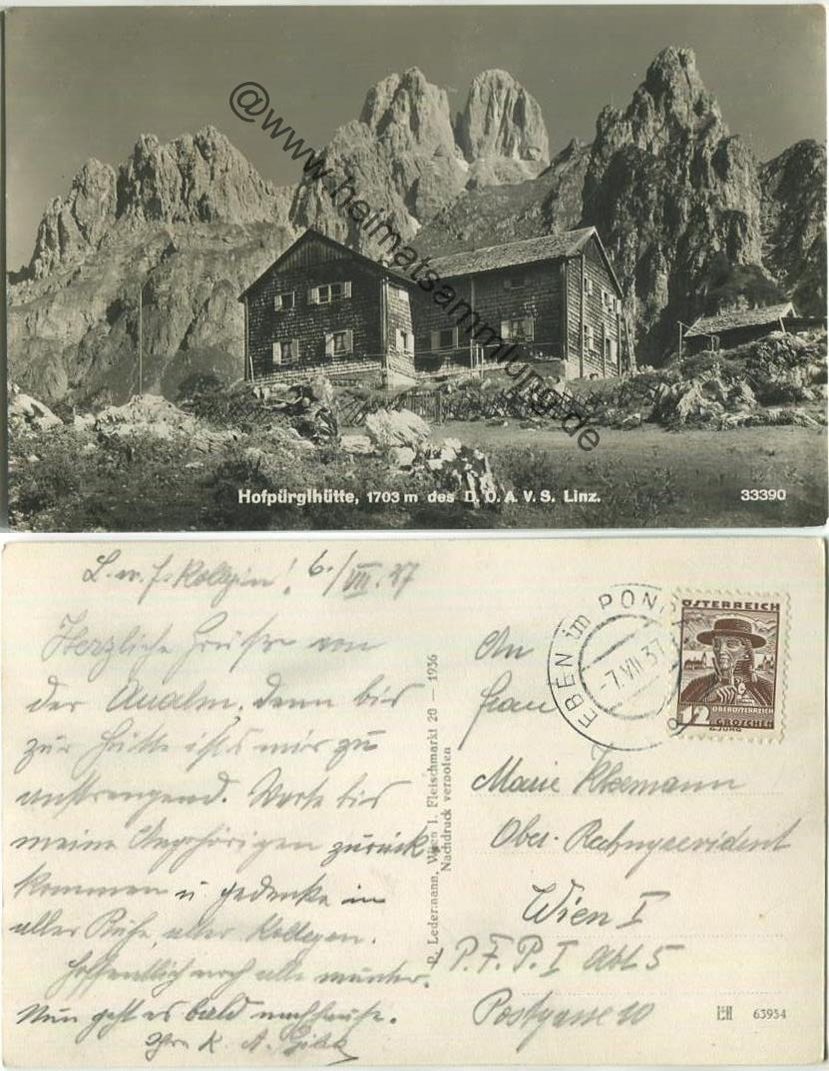 @www.heimatsammlung.de
Hofpürglhütte, 1703 m des D. Ö. A. V. S. Linz. 33390
L. w. f. Kollegin! 6./VII. 37
Herzliche Grüße von
der Aualm, denn bis
zur Hütte ist's mir zu
anstrengend. Warte bis
meine Angehörigen zurück
kommen u gedenke in
aller Ruhe, aller Kollegen.
Hoffentlich noch alle munter.
Nun geht es bald nachhause.
Ihre K. A.
P. Ledermann, Wien I, Fleischmarkt 20 — 1936
Nachdruck verboten
EBEN im PONG
-7.VII.37
ÖSTERREICH
OBERÖSTERREICH
12 GROSCHEN
An
Frau
Marie
Ober-Rechnungsrevident
Wien I
P. F. P. I Abt. 5
Postgasse 10
63954